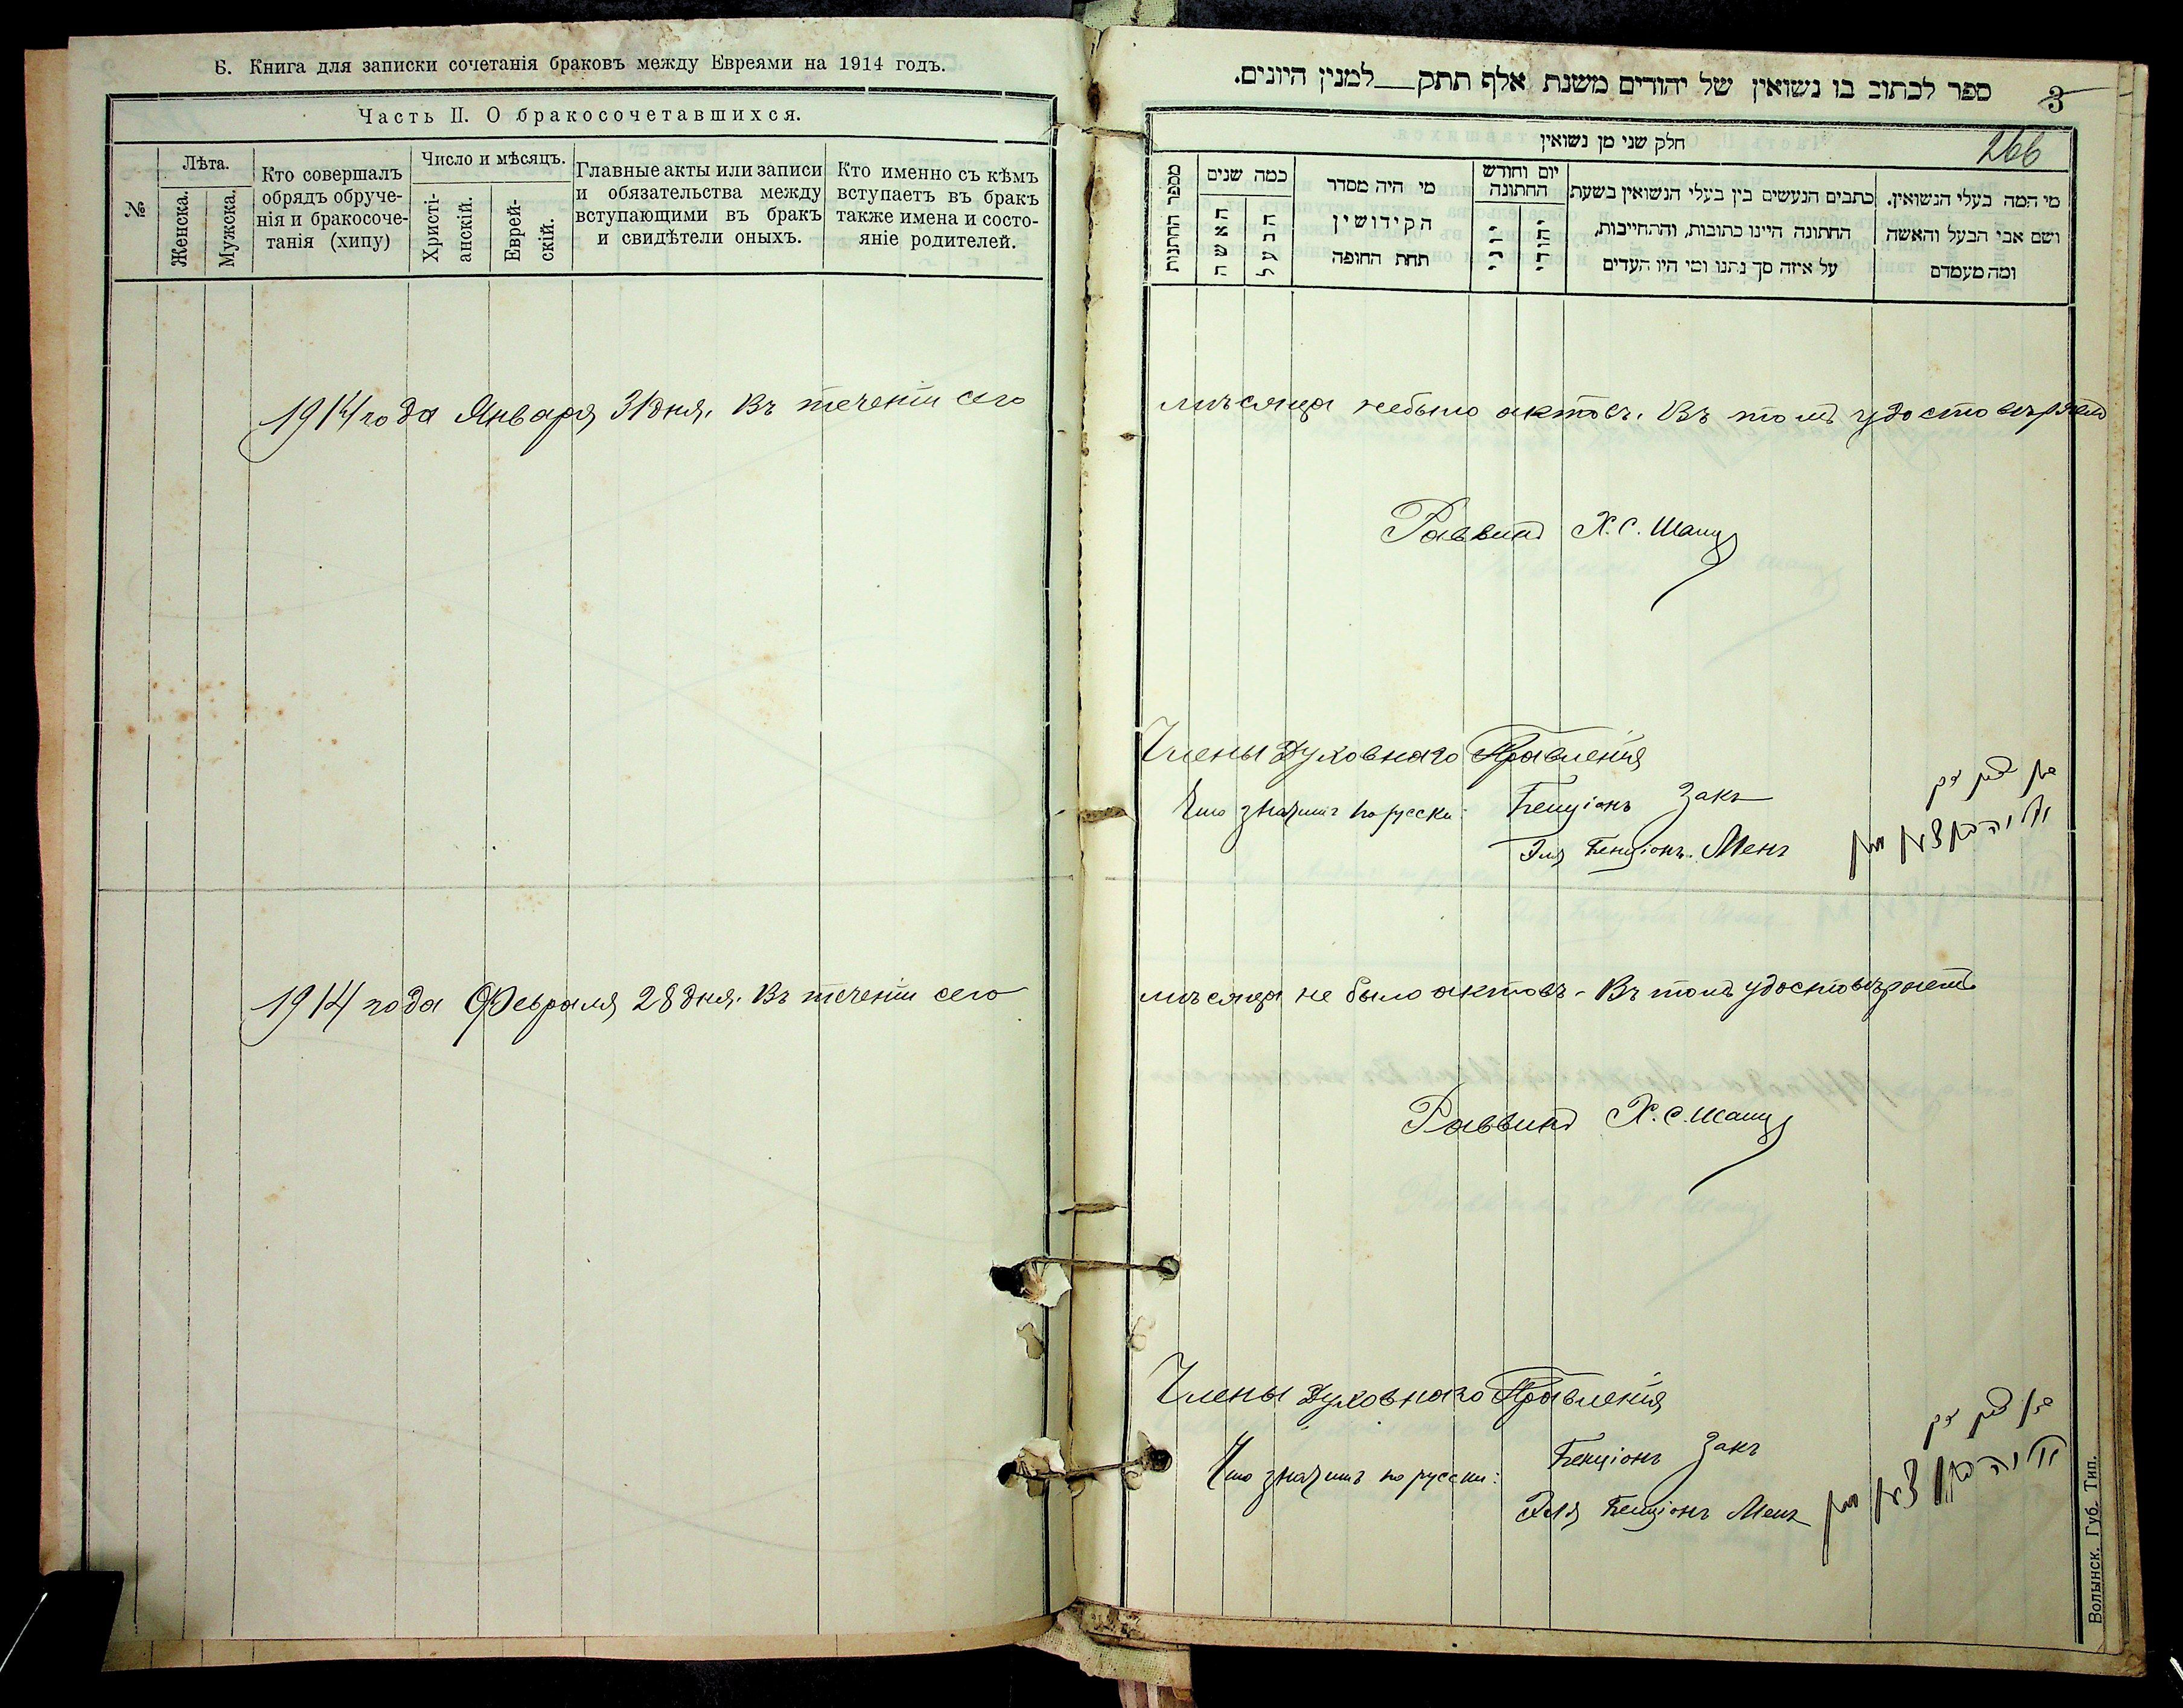 Б. Книга для записки сочетанія браковъ между Евреями на 1914 годъ.
Часть II. О бракосочетавшихся.
№
Лѣта.
Женска.
Мужска.
Кто совершалъ
обрядъ обруче-
нія и бракосоче-
танія (хипу)
Число и мѣсяцъ.
Христі-
анскій.
Еврей-
скій.
Главные акты или записи
и обязательства между
вступающими въ бракъ
и свидѣтели оныхъ.
Кто именно съ кѣмъ
вступаетъ въ бракъ
также имена и состо-
яніе родителей.
1914 года Января 31 дня. Въ теченіи сего
1914 года Февраля 28 дня. Въ теченіи сего
ספר לכתוב בו נשואין של יהודים משנת אלף תתק למנין היונים.
3
266
חלק שני מן נשואין
מי המה בעלי הנשואין.
ושם אבי הבעל והאשה
ומה מעמדם
כתבים הנעשים בין בעלי הנשואין בשעת
החתונה היינו כתובות, והתחייבות,
על איזה סך נתנו ומי היו העדים
יום וחודש
החתונה
יהודי
יוני
מי היה מסדר
הקידושין
תחת החופה
כמה שנים
הבעל
האשה
מספר החתונות
мѣсяца небыло актовъ. Въ томъ удостовѣряемъ
Раввинъ Х. С. Шапц
Члены Духовнаго Правленія
Что значитъ по русски: Бенціонъ Закъ
בן ציון זק
Эля Бенціонъ Менъ
אליה בן ציון מן
мѣсяца не было актовъ. Въ томъ удостовѣряемъ
Раввинъ Х. С. Шапц
Члены Духовнаго Правленія
Что значитъ по русски: Бенціонъ Закъ
בן ציון זק
Эля Бенціонъ Менъ
אליה בן ציון מן
Волынск. Губ. Тип.